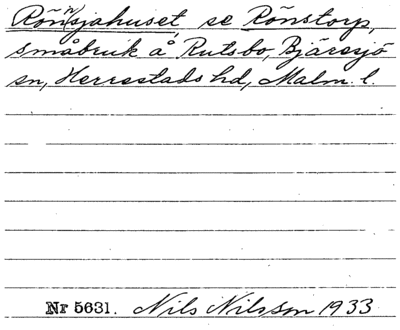 Rönnsjahuset, se Rönstorp,
småbruk å Rutsbo, Bjäresjö
sn, Herrestads hd, Malm. l.
Nr 5631. Nils Nilsson 1933